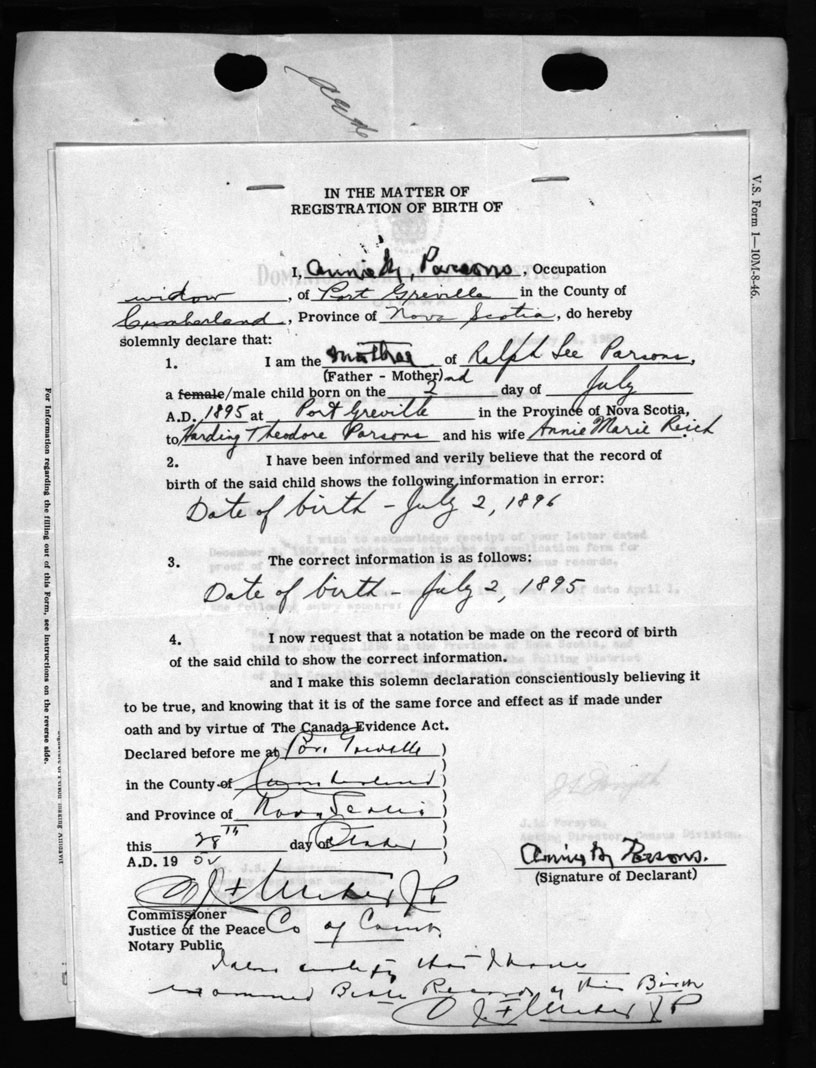 V.S. Form 1—10M-8-46.
IN THE MATTER OF
REGISTRATION OF BIRTH OF
I, Annie M. Parsons, Occupation
widow, of Port Greville in the County of
Cumberland, Province of Nova Scotia, do hereby
solemnly declare that:
1. I am the mother of Ralph Lee Parsons,
(Father - Mother)
a female/male child born on the 2nd day of July
A.D. 1895 at Port Greville in the Province of Nova Scotia,
to Harding Theodore Parsons and his wife Annie Marie Reich.
2. I have been informed and verily believe that the record of
birth of the said child shows the following information in error:
Date of birth - July 2, 1896
3. The correct information is as follows:
Date of birth - July 2, 1895
4. I now request that a notation be made on the record of birth
of the said child to show the correct information.
and I make this solemn declaration conscientiously believing it
to be true, and knowing that it is of the same force and effect as if made under
oath and by virtue of The Canada Evidence Act.
Declared before me at Port Greville )
in the County of Cumberland )
and Province of Nova Scotia )
this 28th day of October )
A.D. 19 )
Annie M Parsons.
(Signature of Declarant)
J.P.
Commissioner
Justice of the Peace Co of Cumb.
Notary Public
I also certify that I have
examined Birth Record of this Birth
J.P.
For information regarding the filling out of this Form, see instructions on the reverse side.